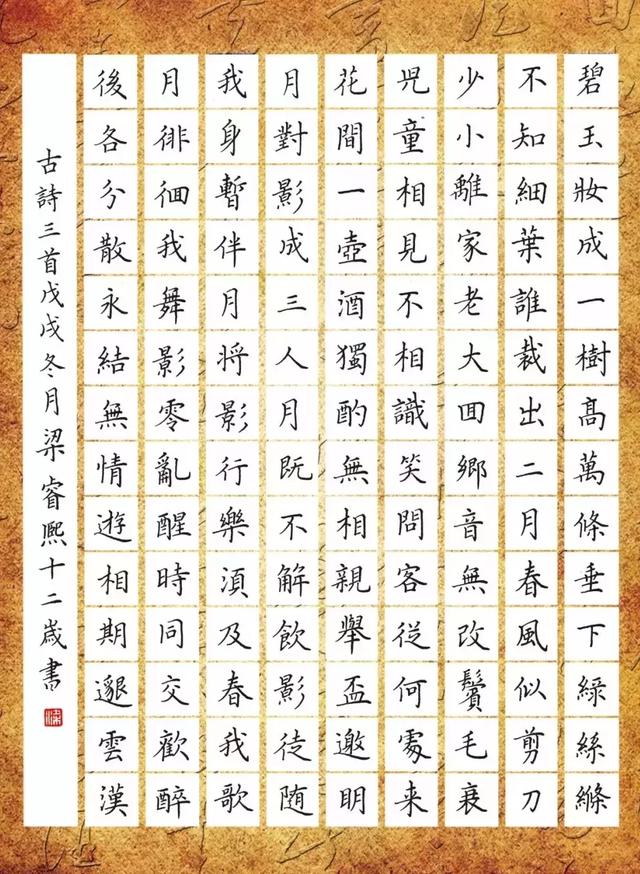 碧玉妝成一樹高萬條垂下綠絲縧
不知細葉誰裁出二月春風似剪刀
少小離家老大回鄉音無改鬢毛衰
兒童相見不相識笑問客從何處来
花間一壺酒獨酌無相親舉盃邀明
月對影成三人月既不解飲影徒随
我身暫伴月将影行樂須及春我歌
月徘徊我舞影零亂醒時同交歡醉
後各分散永結無情遊相期邈雲漢
古詩三首戊戌冬月梁睿熙十二歲書